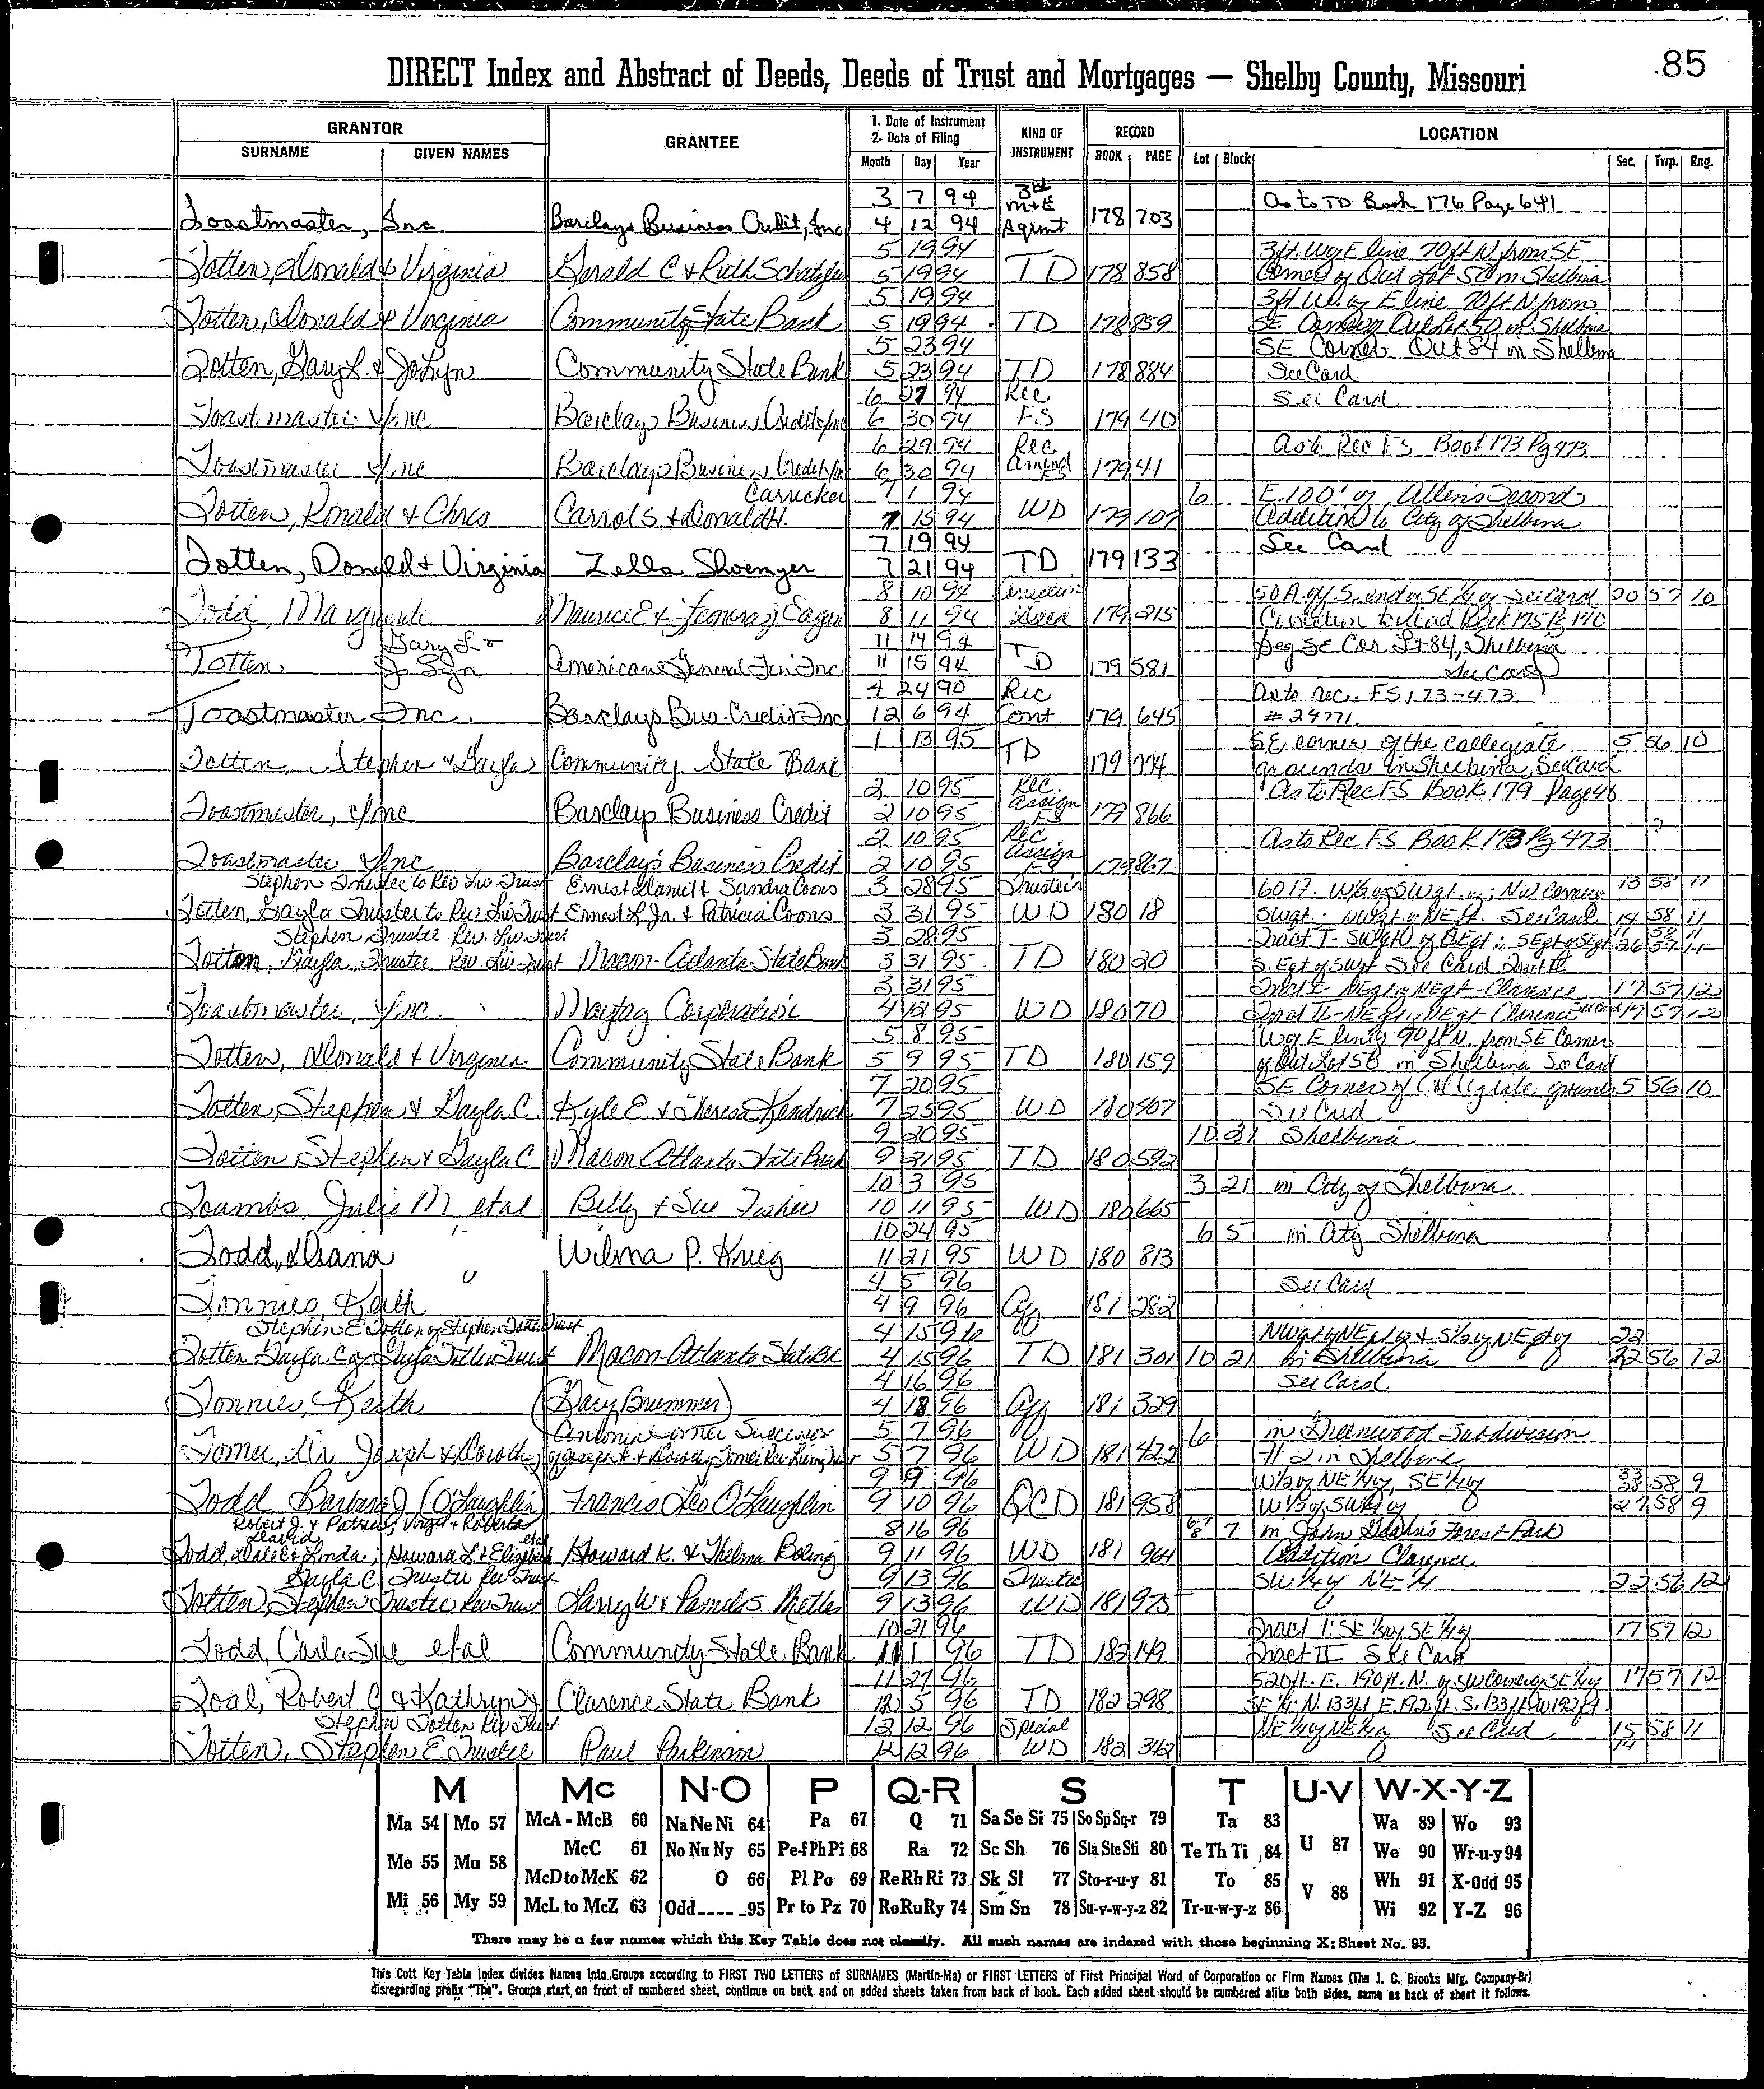 85
DIRECT Index and Abstract of Deeds, Deeds of Trust and Mortgages — Shelby County, Missouri
GRANTOR
SURNAME GIVEN NAMES
GRANTEE
1. Date of Instrument
2. Date of Filing
Month Day Year
KIND OF INSTRUMENT
RECORD
BOOK PAGE
LOCATION
Lot Block Sec. Twp. Rng.
3 7 94 3rd M+E As to TD Book 176 Page 641
Toastmaster, Inc. Barclays Business Credit, Inc 4 12 94 Agmt 178 703
5 19 94 3ft. W of E line 70ft N. from SE
Totten, Donald & Virginia Gerald C & Ruth 5 19 94 TD 178 858 Corner of Out Lot 50 in Shelbina
5 19 94 3ft W. of E line 70ft N from
Totten, Donald & Virginia Community State Bank 5 19 94 TD 178 859 SE Corner Out Lot 50 in Shelbina
5 23 94 SE Corner Out 84 in Shelbina
Totten, Gary L. & JoLyn Community State Bank 5 23 94 TD 178 884 See Card
6 27 94 Rec See Card
Toastmaster Inc. Barclays Business Credit Inc 6 30 94 F.S 179 40
6 29 94 Rec As to Rec FS Book 173 Pg 473
Toastmaster Inc Barclays Business Credit Inc 6 30 94 Amend 179 41
Carricker 7 1 94 6 E. 100' of Allen's Second
Totten, Ronald & Chris Carrol S. & Donald H. 7 15 94 WD 179 107 Addition to City of Shelbina
7 19 94 See Card
Totten, Donald & Virginia Zella 7 21 94 TD 179 133
8 10 94 50 A. of S. end of SE 1/4 of See Card 20 57 10
Todd, Marguerite Maurice E & Eagen 8 11 94 Deed 179 215 Book 175 Pg 140
Gary L & 11 14 94 Beg SE Cor Lt 84, Shelbina
Totten Jo Lyn American General Fin Inc 11 15 94 TD 179 581 See Card
4 24 90 Rec As to rec. FS 173-473
Toastmaster Inc. Barclays Bus. Credit Inc 12 6 94 Cont 179 645 # 24771
1 13 95 TD S.E. corner of the collegiate 5 56 10
Totten, Stephen & Gayla Community State Bank 179 774 grounds in Shelbina, See Card
2 10 95 Rec. As to Rec FS Book 179 Page 40
Toastmaster, Inc Barclays Business Credit 2 10 95 Assign FS 179 866
2 10 95 Rec As to Rec F.S Book 173 Pg 473
Toastmaster Inc Barclay's Business Credit 2 10 95 Assign FS 179 867
Stephen Trustee to Rev Liv Trust Ernest Daniel & Sandra Coons 3 28 95 Trustee's W/2 of SW qt NW Corner 13 58 11
Totten, Gayla Trustee to Rev Liv Trust Ernest L Jr. & Patricia Coons 3 31 95 WD 180 18 SW qt; See Card 14 58 11
Stephen Trustee Rev. Liv Trust 3 28 95 Tract I-
Totten, Gayla, Trustee Rev Liv Trust Macon-Atlanta State Bank 3 31 95 TD 180 20 See Card Tract II
3 31 95 Tract I- NE qt of NE qt - Clarence 17 57 12
Toastmaster, Inc. Maytag Corporation 4 12 95 WD 180 70 Tract II- Clarence 17 57 12
5 8 95 W of E line 90ft N. from SE Corner
Totten, Donald & Virginia Community State Bank 5 9 95 TD 180 159 of Out Lot 50 in Shelbina See Card
7 20 95 SE Corner of Collegiate grounds 5 56 10
Totten, Stephen & Gayla C. Kyle E & Theresa Kendrick 7 25 95 WD 180 407 See Card
9 20 95 10 21 Shelbina
Totten, Stephen & Gayla C Macon Atlanta State Bank 9 21 95 TD 180 592
10 3 95 3 21 in City of Shelbina
Toumbs, Julie M etal Billy & Sue 10 11 95 WD 180 665
10 24 95 6 5 in City Shelbina
Todd, Diana Wilma P. Krieg 11 21 95 WD 180 813
4 5 96 See Card
Tonnies, Keith 4 9 96 Aff 181 282
Stephen E Totten of Stephen Totten Trust 4 15 96 NW qt of NE qt of & S 1/2 of NE qt of 22
Totten Gayla C of Gayla Totten Trust Macon-Atlanta State Bk 4 15 96 TD 181 301 10 21 in Shelbina 22 56 12
4 16 96 See Card
Tonnies, Keith (Gary Brummer) 4 18 96 Aff 181 329
Antonio Tomei Successor 5 7 96 6 in Greenwood Subdivision
Tomei, Joseph & Dorothy of Joseph & Dorothy Tomei Rev Living Trust 5 7 96 WD 181 422 # 2 in Shelbina
9 9 96 W 1/2 of NE 1/4 of, SE 1/4 of 33 58 9
Todd Barbara J (O'Laughlin) Francis Leo O'Laughlin 9 10 96 QCD 181 958 W 1/2 of SW 1/4 of 27 58 9
Robert J. & Patricia, Virgil & Roberta 8 16 96 7 in John Forest Park
David
Todd, & Linda; Howard L & Elizabeth etal Howard K. & Thelma Boling 9 11 96 WD 181 964 Addition Clarence
Gayla C. Trustee Rev Trust 9 13 96 Trustee SW 1/4 of NE 1/4 22 56 12
Totten, Stephen Trustee Rev Trust Larry W & Pamela S. 9 13 96 WD 181 975
10 21 96 Tract I: SE 1/4 of SE 1/4 of 17 57 12
Todd, Carla Sue etal Community State Bank 11 1 96 TD 182 149 Tract II See Card
11 27 96 520 ft. E. 190 ft. N. of SW Corner of SE 1/4 of 17 57 12
Toal, Robert C & Kathryn Clarence State Bank 12 5 96 TD 182 298 SE 1/4. N. 133 ft E. 192 ft. S. 133 ft W 192 ft.
Stephen Totten Rev Trust 12 12 96 Special NE 1/4 of NE 1/4 of See Card 15 58 11
Totten, Stephen E. Trustee Paul Parkinson 12 12 96 WD 182 362 14
M Mc N-O P Q-R S T U-V W-X-Y-Z
Ma 54 Mo 57 McA - McB 60 Na Ne Ni 64 Pa 67 Q 71 Sa Se Si 75 So Sp Sq-r 79 Ta 83 U 87 Wa 89 Wo 93
Me 55 Mu 58 McC 61 No Nu Ny 65 Pe-f Ph Pi 68 Ra 72 Sc Sh 76 Sta Ste Sti 80 Te Th Ti 84 We 90 Wr-u-y 94
McD to McK 62 O 66 Pl Po 69 Re Rh Ri 73 Sk Sl 77 Sto-r-u-y 81 To 85 V 88 Wh 91 X-Odd 95
Mi 56 My 59 McL to McZ 63 Odd---- -95 Pr to Pz 70 Ro Ru Ry 74 Sm Sn 78 Su-v-w-y-z 82 Tr-u-w-y-z 86 Wi 92 Y-Z 96
There may be a few names which this Key Table does not classify. All such names are indexed with those beginning X; Sheet No. 95.
This Cott Key Table Index divides Names into Groups according to FIRST TWO LETTERS of SURNAMES (Martin-Ma) or FIRST LETTERS of First Principal Word of Corporation or Firm Names (The J. C. Brooks Mfg. Company-Br)
disregarding prefix "The". Groups start on front of numbered sheet, continue on back and on added sheets taken from back of book. Each added sheet should be numbered alike both sides, same as back of sheet it follows.